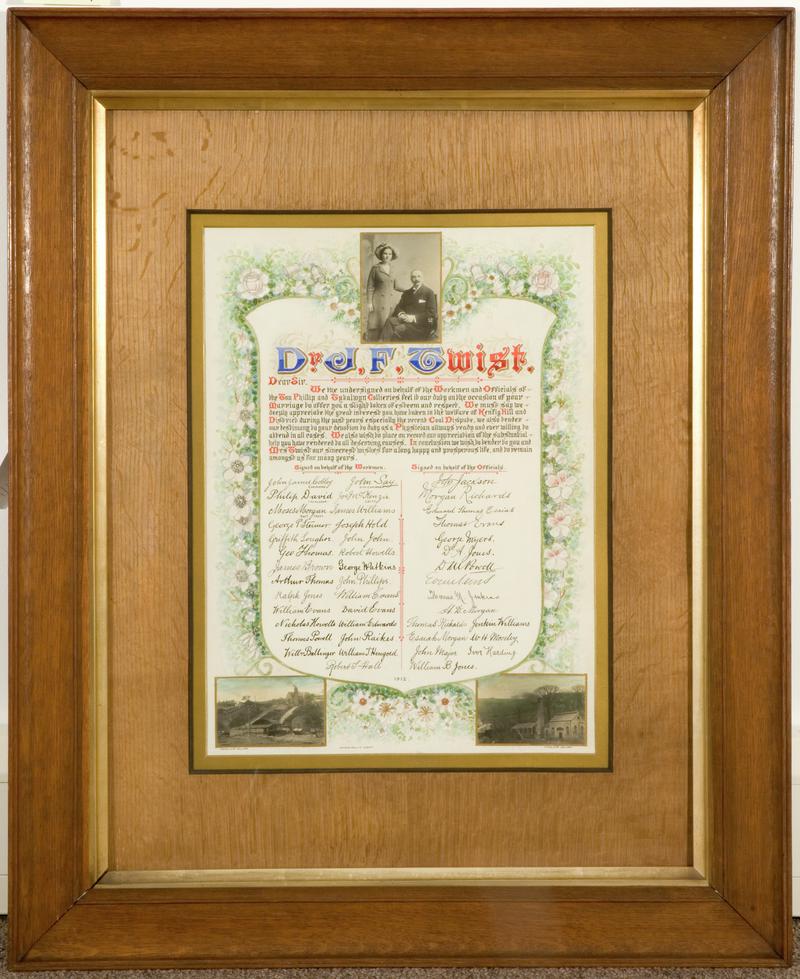 Dr J. F. Twist.
Dear Sir.
We the undersigned on behalf of the Workmen and Officials of
the Ton Phillip and Bykalwyn Collieries feel it our duty on the occasion of your
Marriage to offer you a slight token of esteem and respect. We must say we
deeply appreciate the great interest you have taken in the welfare of Kenfig Hill and
District during the past years especially the recent Coal Dispute, we also tender
our testimony to your devotion to duty as a Physician always ready and ever willing to
attend in all cases. We also wish to place on record our appreciation of the substantial
help you have rendered to all deserving causes. In conclusion we wish to tender to you and
Mrs Twist our sincerest wishes for a long happy and prosperous life, and to remain
amongst us for many years.
Signed on behalf of the Workmen. Signed on behalf of the Officials.
John James John Say John Jackson
Philip David Morgan Richards
Moses Morgan James Williams Edward Thomas
George P Joseph Hold Thomas Evans
Griffith Loughor John John George Myers.
Geo Thomas. Robert Howells D. A. Jones.
James Brown George Watkins D. M. Powell
Arthur Thomas John Phillips
Ralph Jones William Evans Thomas M. Jenkins
William Evans David Evans Morgan
Nicholas Howells William Edwards Thomas Rickards Jenkin Williams
Thomas Powell John Raikes Esaiah Morgan W H Moseley
Willm Ballinger William T. Hengoed John Major Ivor Harding
Robert T. Hall William B. Jones.
1912.